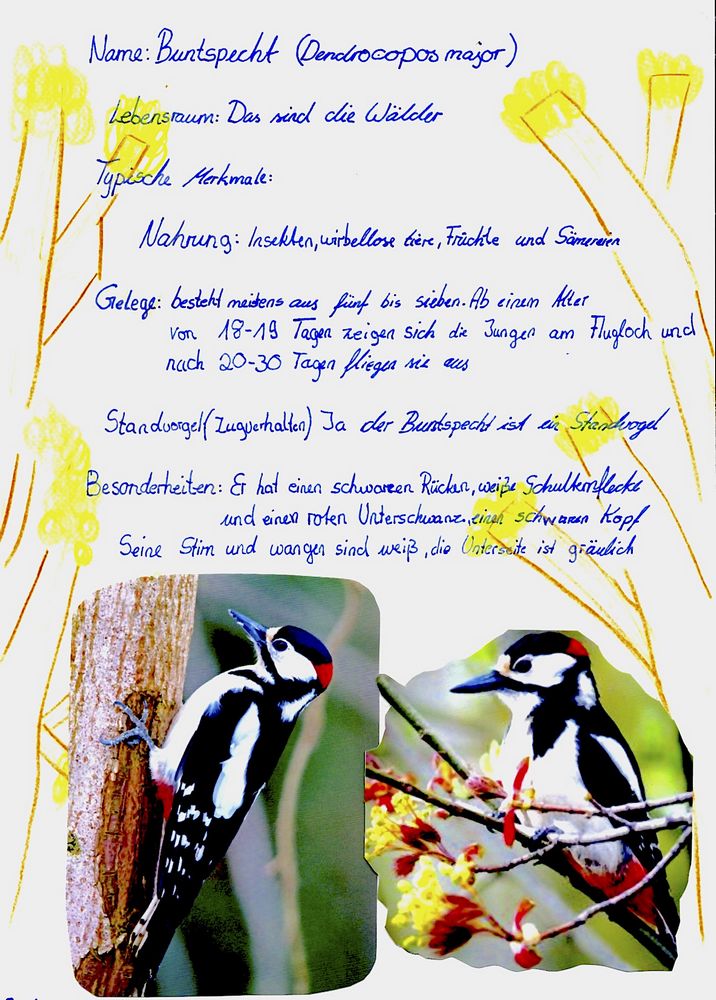 Name: Buntspecht (Dendrocopos major)
Lebensraum: Das sind die Wälder
Typische Merkmale:
Nahrung: Insekten, wirbellose tiere, Früchte und Sämereien
Gelege: besteht meistens aus fünf bis sieben. Ab einem Alter
von 18-19 Tagen zeigen sich die Jungen am Flugloch und
nach 20-30 Tagen fliegen sie aus
Standvorgel (Zugverhalten) Ja der Buntspecht ist ein Standvogel
Besonderheiten: Er hat einen schwarzen Rücken, weiße Schulternflecke
und einen roten Unterschwanz, einen schwarzen Kopf
Seine Stirn und wangen sind weiß, die Unterseite ist gräulich